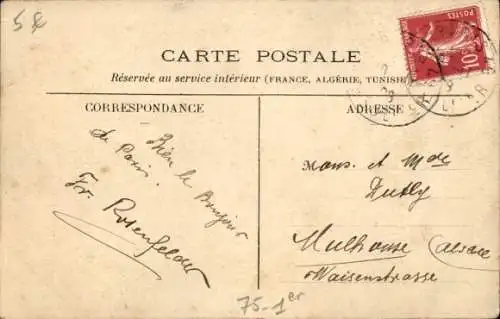 5€
POSTES
10
CARTE POSTALE
Réservée au service intérieur (FRANCE, ALGÉRIE, TUNISIE)
CORRESPONDANCE
ADRESSE
Bien le Bonjour
de Paris.
Fr. Rosenfelder
Mons. et Mde
Mulhouse (Alsace)
Waisenstrasse
75-1er